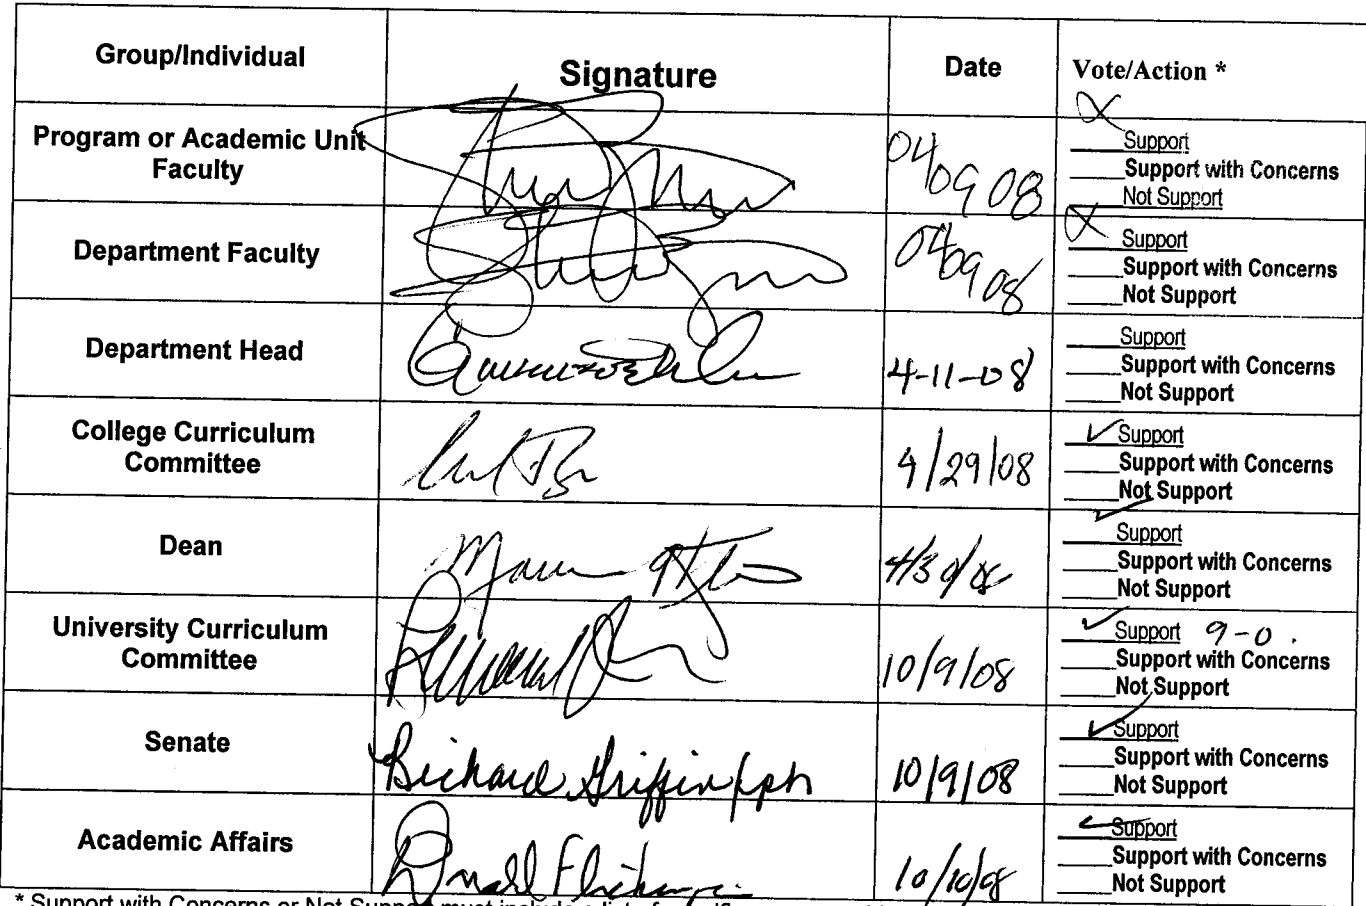 Group/Individual Signature Date Vote/Action *
Program or Academic Unit
Faculty
04 09 08
Support
Support with Concerns
Not Support
Department Faculty
04 09 08
Support
Support with Concerns
Not Support
Department Head
4-11-08
Support
Support with Concerns
Not Support
College Curriculum
Committee
4/29/08
Support
Support with Concerns
Not Support
Dean
Support
Support with Concerns
Not Support
University Curriculum
Committee
10/9/08
Support 9-0.
Support with Concerns
Not Support
Senate
Richard Griffin/pph
10/9/08
Support
Support with Concerns
Not Support
Academic Affairs
10/10/08
Support
Support with Concerns
Not Support
* Support with Concerns or Not Support must include a list of